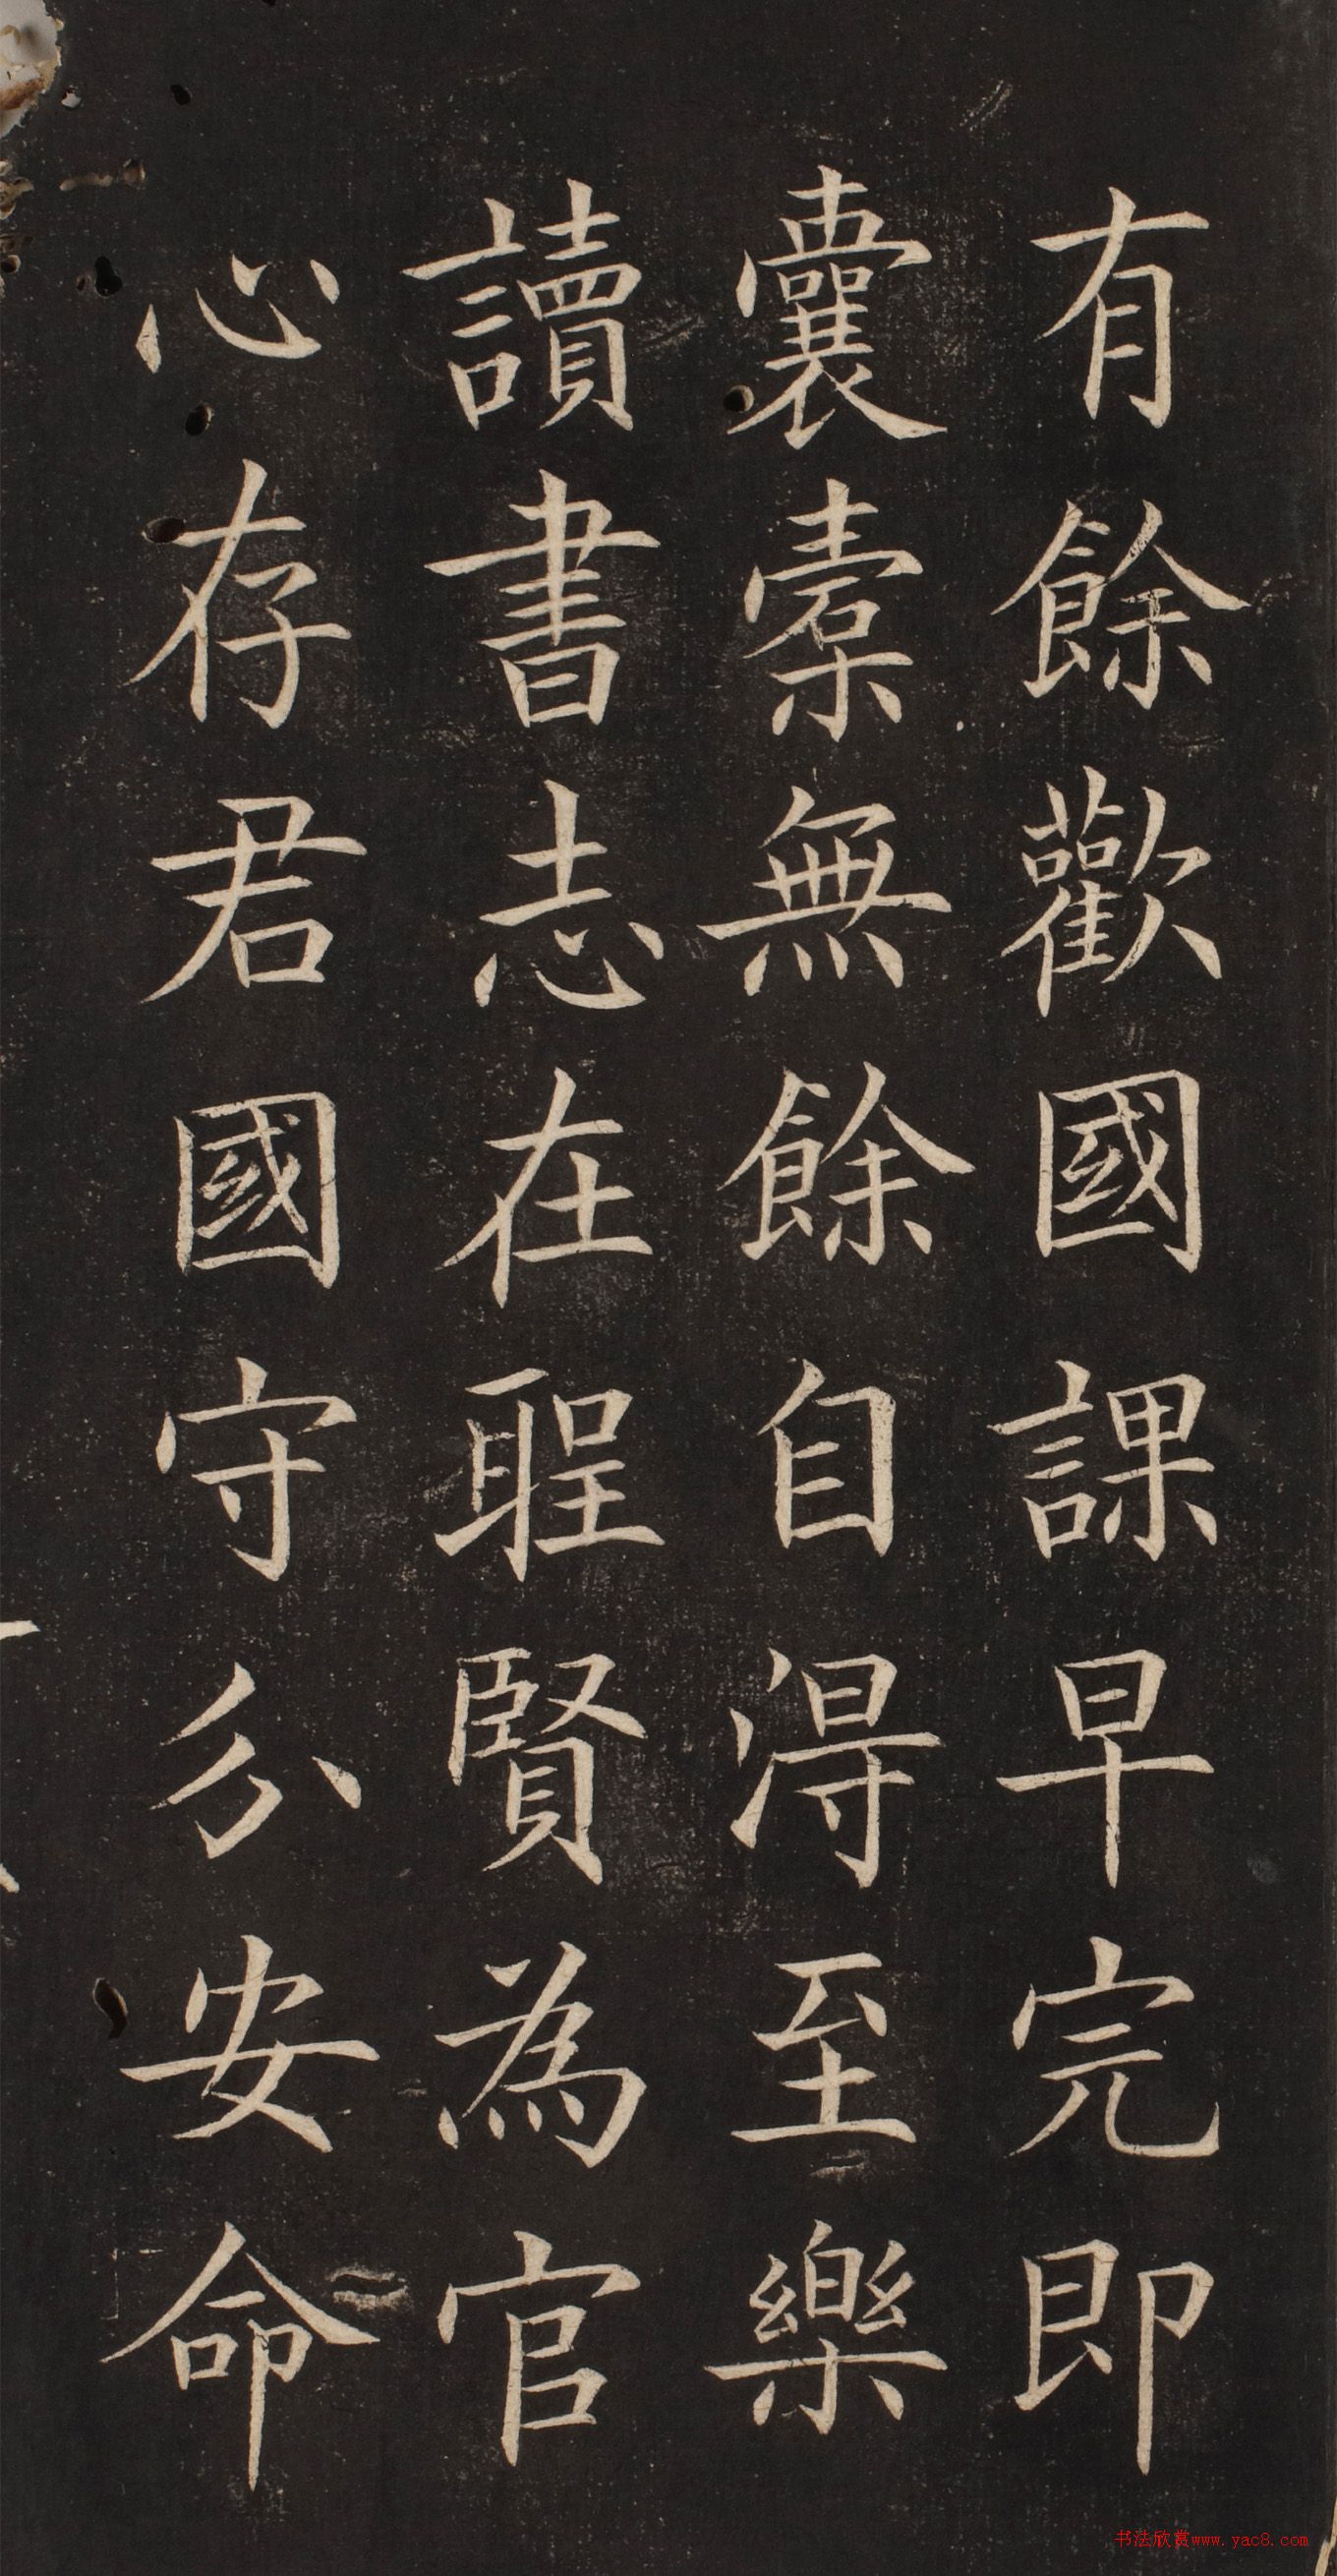 有餘歡國課早完即
囊橐無餘自淂至樂
讀書志在聖賢為官
心存君國守分安命
书法欣赏www.yac8.com